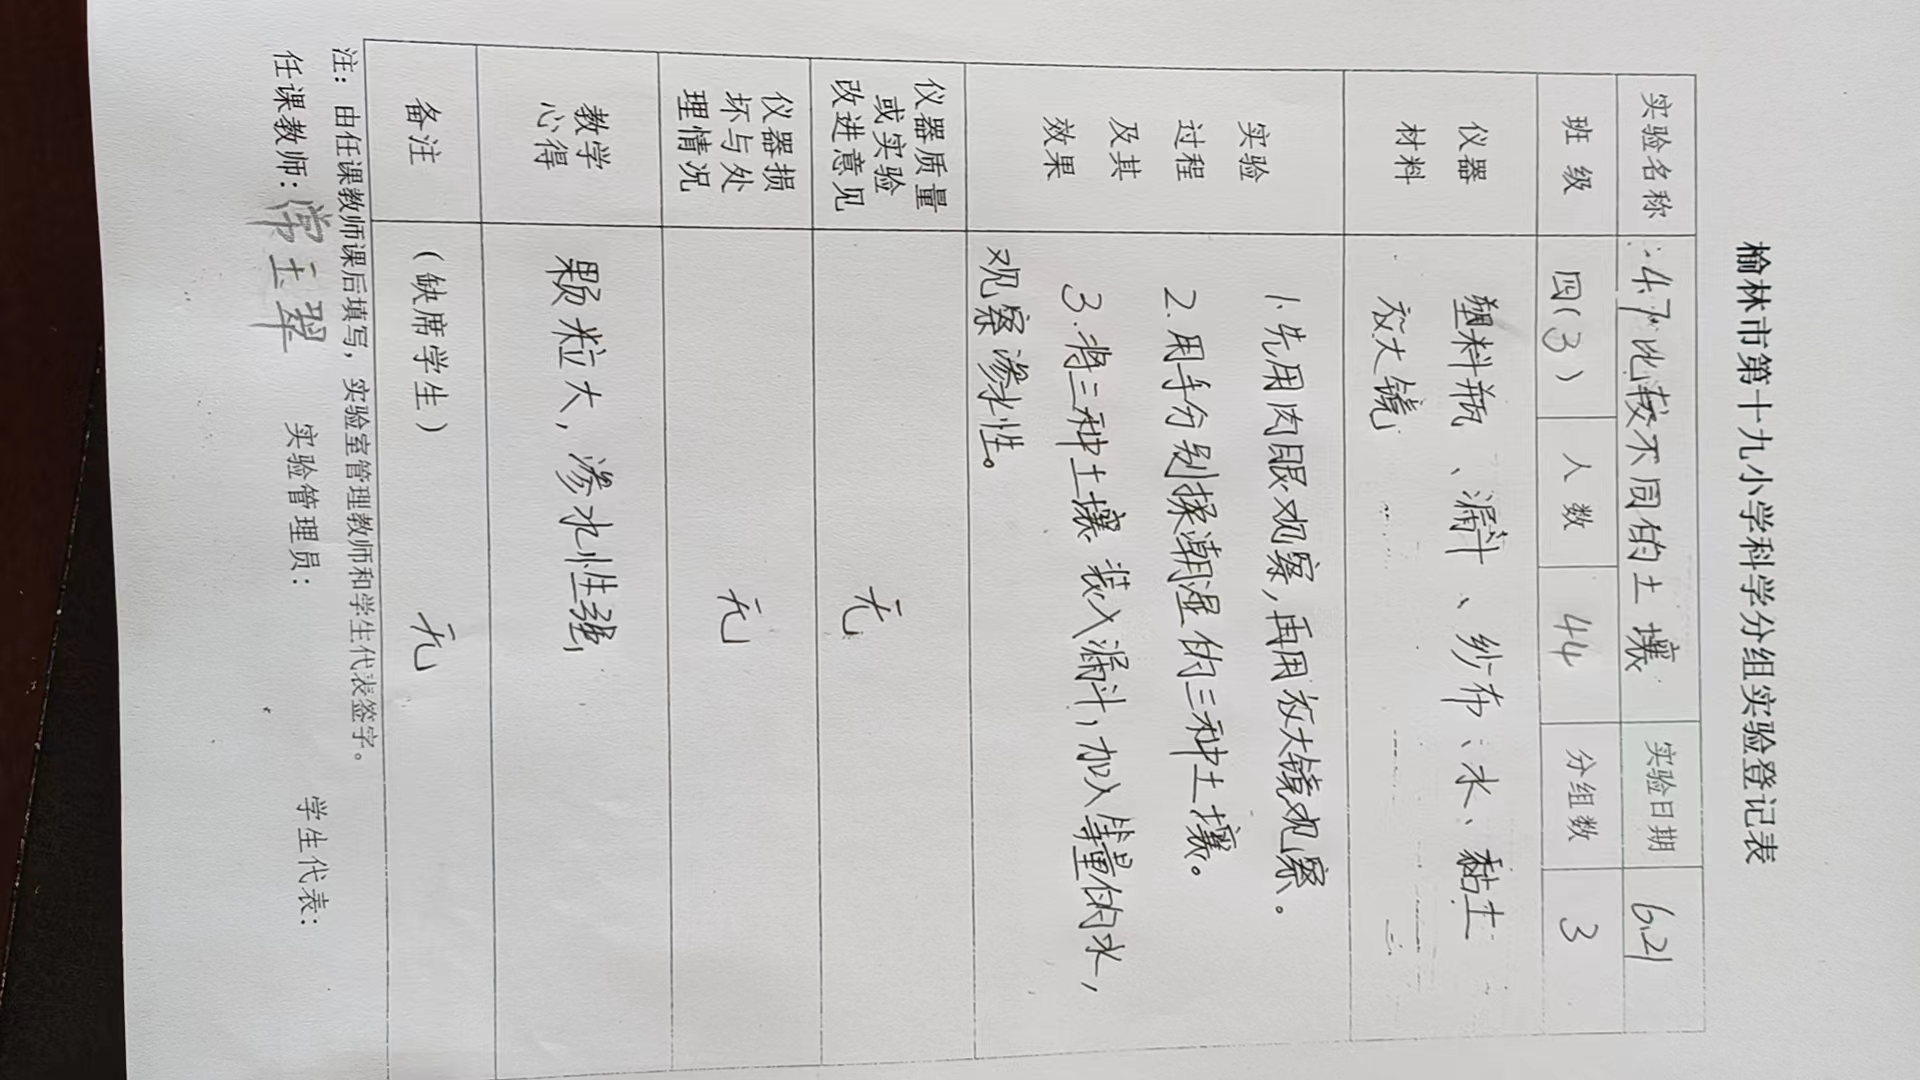 榆林市第十九小学科学分组实验登记表
实验名称 4.7.比较不同的土壤 实验日期 6.21
班级 四(3) 人数 44 分组数 3
仪器 塑料瓶、漏斗、纱布、水、黏土
材料 放大镜
实验 1.先用肉眼观察,再用放大镜观察。
过程 2.用手分别揉潮湿的三种土壤。
及其 3.将三种土壤装入漏斗,加入等量的水,
效果 观察渗水性。
仪器质量
或实验
改进意见 无
仪器损
坏与处
理情况 无
教学 颗粒大,渗水性强
心得
备注 (缺席学生) 无
注:由任课教师课后填写,实验室管理教师和学生代表签字。
任课教师:常玉翠 实验管理员: 学生代表: